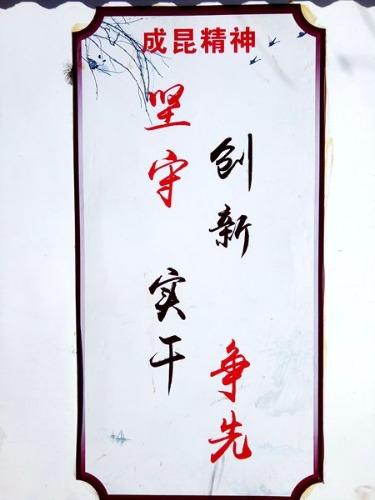 成昆精神
坚守
实干
创新
争先